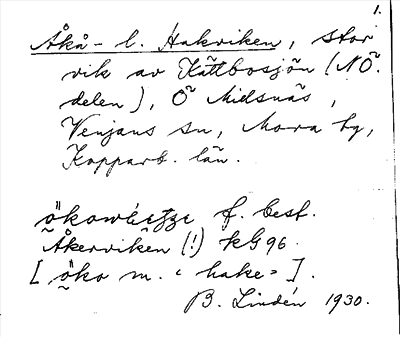 1.
Åkå- l. Hakviken, stor
vik av Kättbosjön (NÖ.
delen), Ö Midsnäs,
Venjans sn, Mora tg,
Kopparb. län.
f. best.
Åkerviken (!) KG 96.
[ öko m. "hake" ].
B. Lindén 1930.